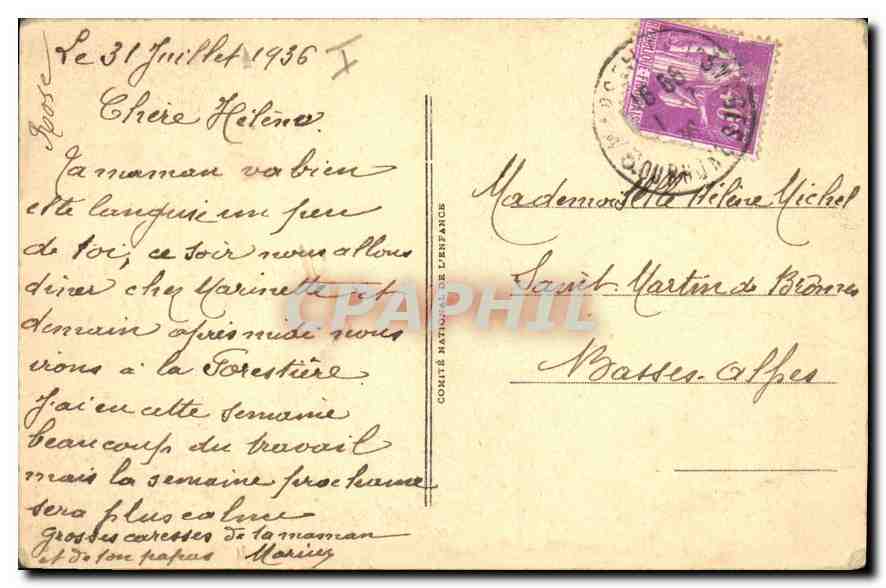 Le 31 Juillet 1936
Rose
Chère Hélène
Ta maman va bien
elle languie un peu
de toi, ce soir nous allons
diner chez Marinette et
demain après midi nous
irons à la Forestière
J'ai eu cette semaine
beaucoup du travail
mais la semaine prochaine
sera plus calme
Grosses caresses de ta maman
et de ton papa Marius
COMITÉ NATIONAL DE L'ENFANCE
Mademoiselle Hélène Michel
Saint Martin de Brômes
Basses-Alpes
CPAPHIL